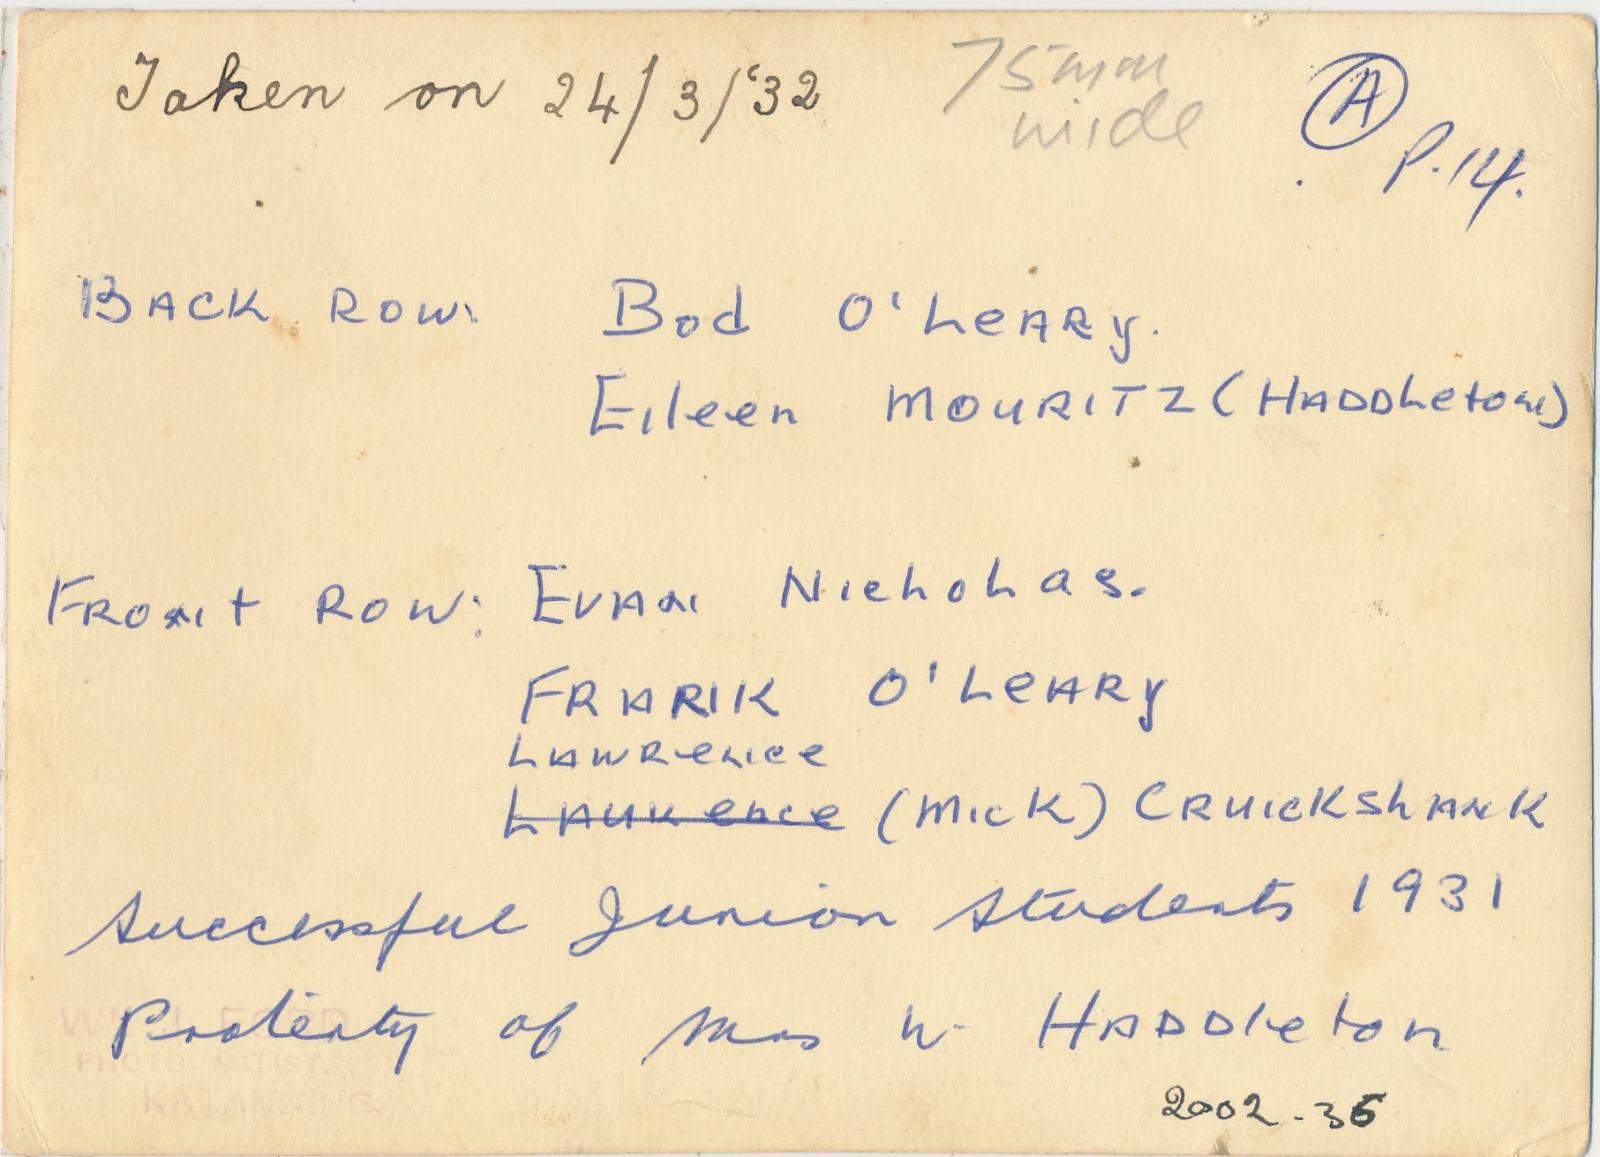 Taken on 24/3/'32
75mm
wide
A
P.14.
BACK ROW: Bod O'LeARy.
Eileen MOURITZ (HADDLeton)
FRONT ROW: EVAN NICHOLas.
FRANK O'LeARy
LAWRence
LAURence (MICK) CRUICKShANK
Successful Junior Students 1931
Property of Mrs W. HADDleton
PHOTO ARTIST.
KATANNING.
2002-36